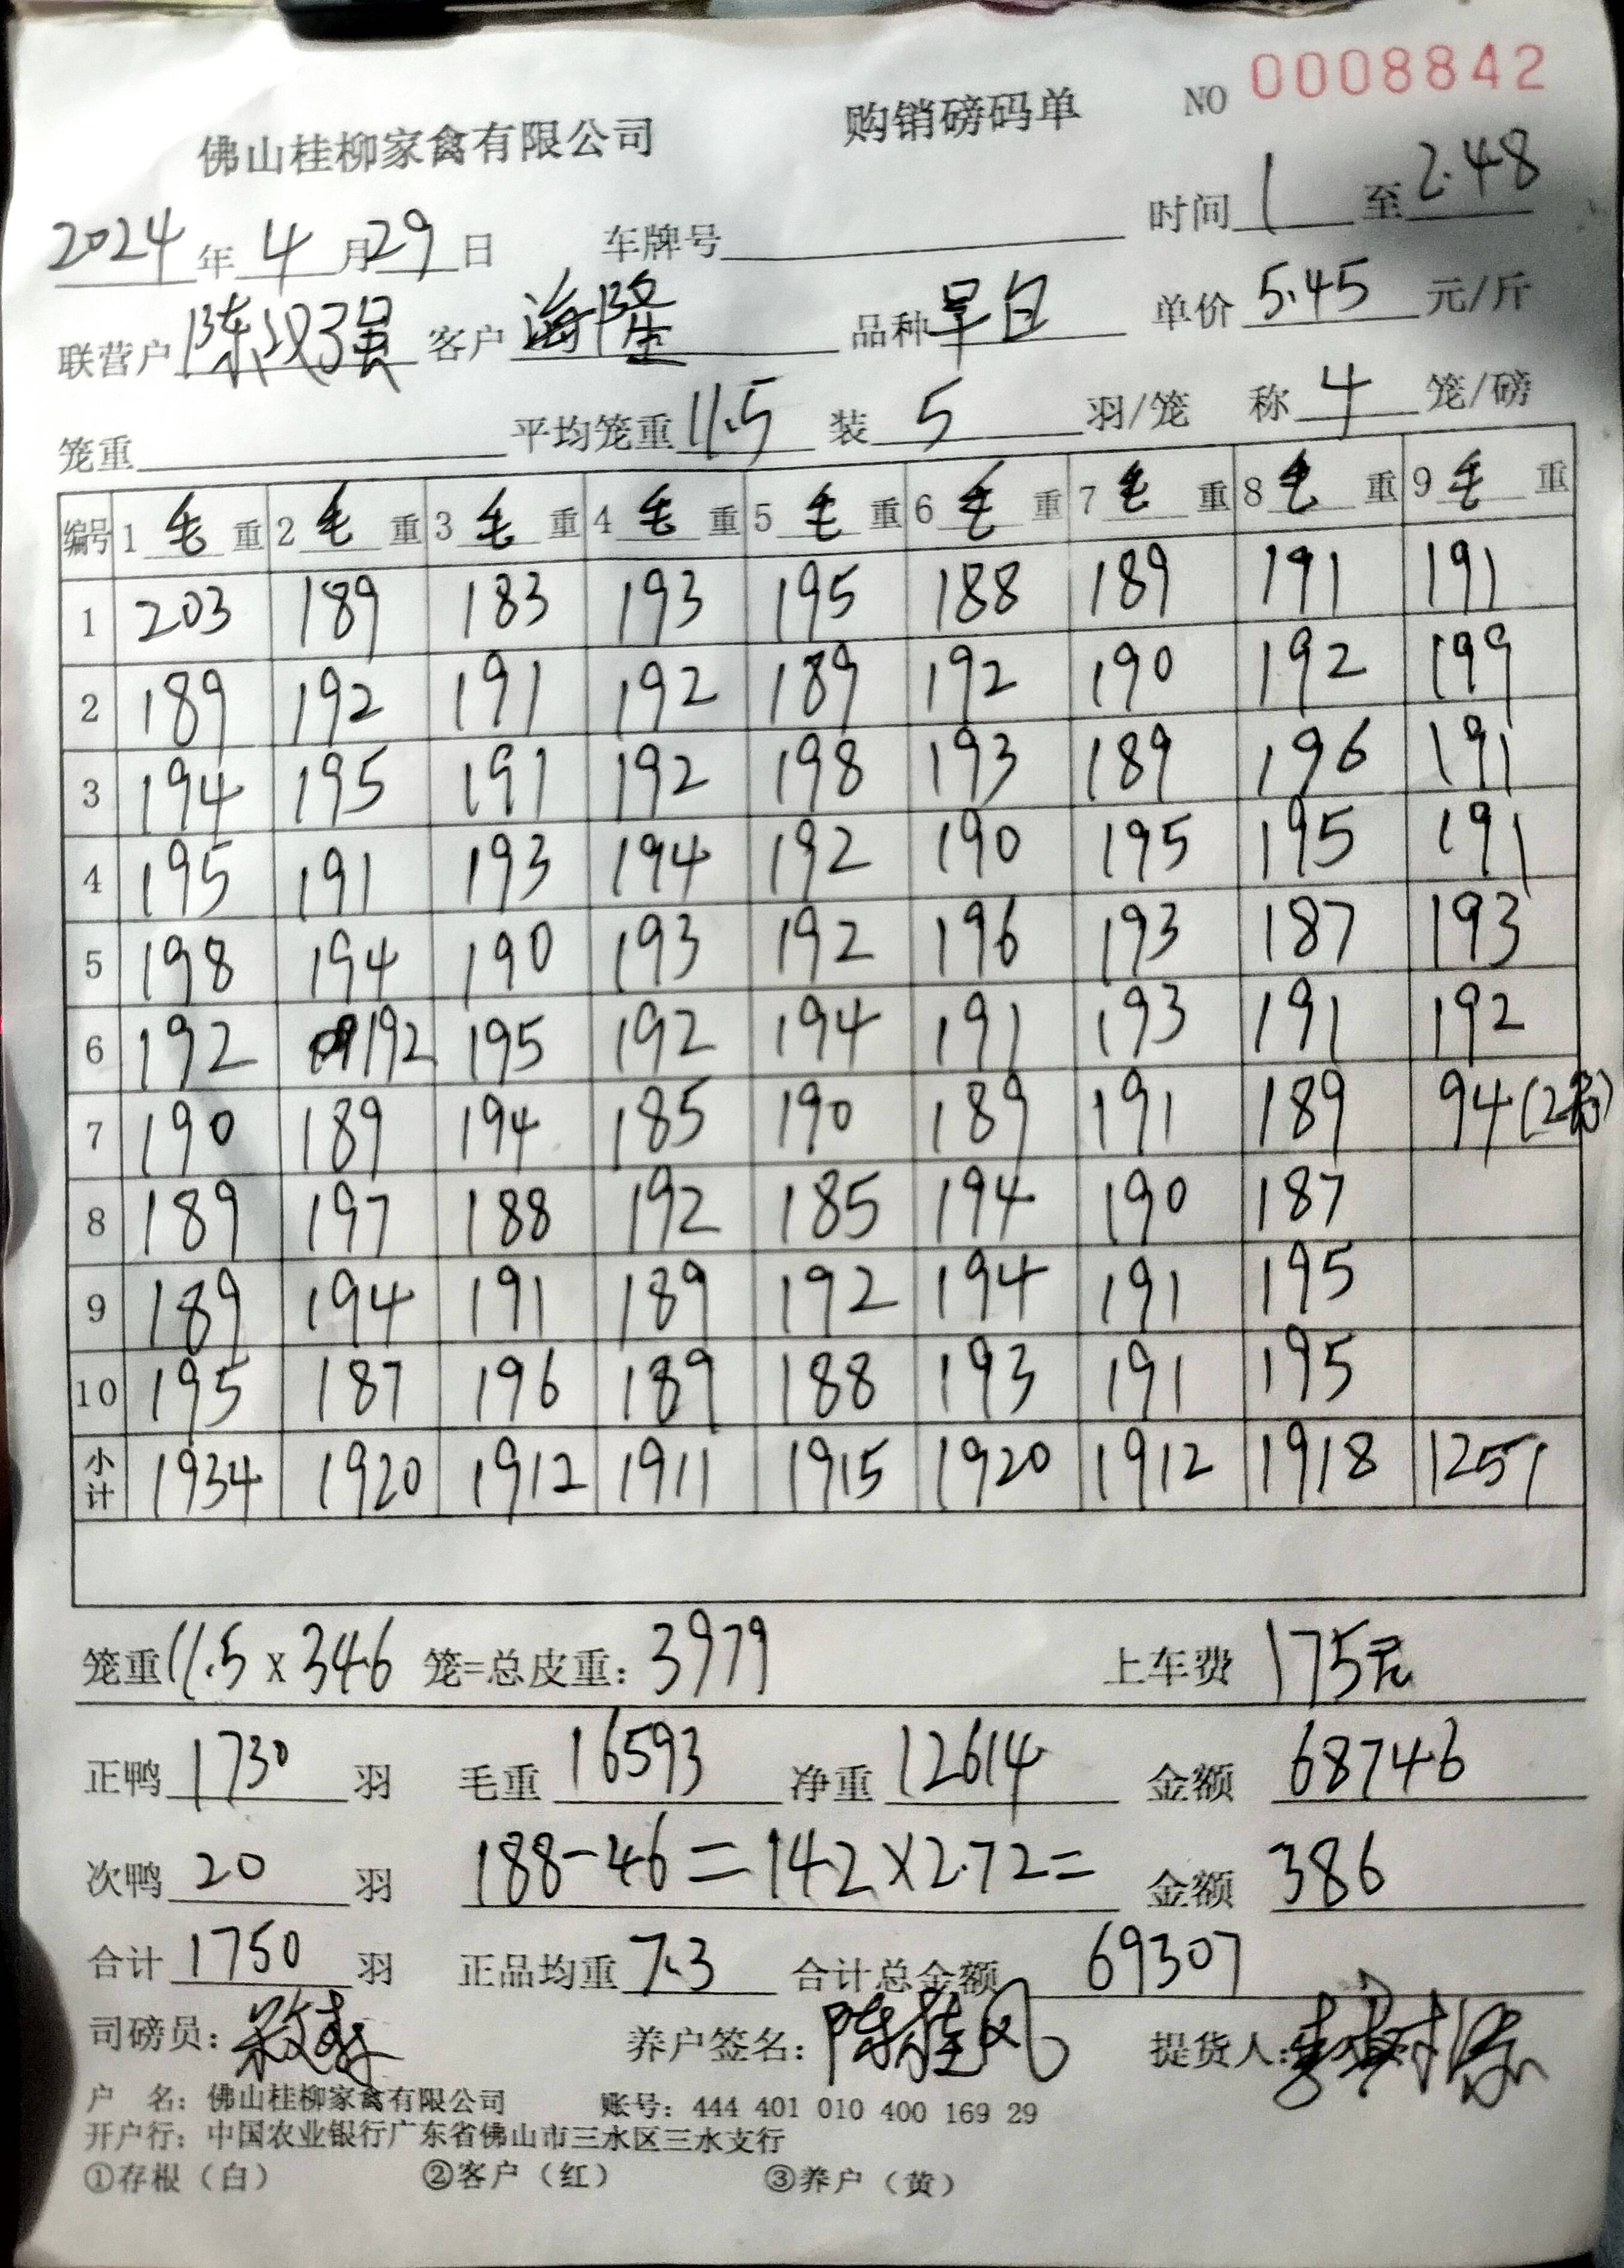 佛山桂柳家禽有限公司 购销磅码单 NO 0008842
2024年4月29日 车牌号 时间 1 至 2.48
联营户 陈汉强 客户 海隆 品种 旱白 单价 5.45 元/斤
笼重 平均笼重 11.5 装 5 羽/笼 称 4 笼/磅
编号 1 毛 重 2 毛 重 3 毛 重 4 毛 重 5 毛 重 6 毛 重 7 毛 重 8 毛 重 9 毛 重
1 203 189 183 193 195 188 189 191 191
2 189 192 191 192 189 192 190 192 199
3 194 195 191 192 198 193 189 196 191
4 195 191 193 194 192 190 195 195 191
5 198 194 190 193 192 196 193 187 193
6 192 192 195 192 194 191 193 191 192
7 190 189 194 185 190 189 191 189 94(2笼)
8 189 197 188 192 185 194 190 187
9 189 194 191 189 192 194 191 195
10 195 187 196 189 188 193 191 195
小计 1934 1920 1912 1911 1915 1920 1912 1918 1251
笼重 11.5 x 346 笼=总皮重: 3979 上车费 175元
正鸭 1730 羽 毛重 16593 净重 12614 金额 68746
次鸭 20 羽 188-46=142×2.72= 金额 386
合计 1750 羽 正品均重 7.3 合计总金额 69307
司磅员: 养户签名: 陈桂凤 提货人:
户 名: 佛山桂柳家禽有限公司 账号: 444 401 010 400 169 29
开户行: 中国农业银行广东省佛山市三水区三水支行
①存根（白） ②客户（红） ③养户（黄）